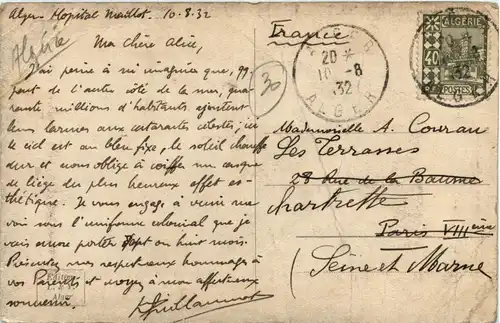 Alger - Hôpital Maillot. 10.8.32
Algérie
Ma Chère Alice,
J'ai peine à m'imaginer que,
part de l'autre côté de la mer, qua-
rante millions d'habitants ajoutent
leurs larmes aux cataractes célestes; ici
le ciel est au bleu fixe, le soleil chauffe
dur et nous oblige à coiffer un casque
de liège du plus heureux effet es-
thétique. Je vous engage à venir me
voir sous l'uniforme colonial que je
vais encore porter sept ou huit mois.
Présentez mes respectueux hommages à
vos Parents et croyez à mon affectueux
souvenir.
Guillaumot
Editions
Alger
30
France
ALGER
20 *
10 - 8
32
ALGER
ALGERIE
40
POSTES
Mademoiselle A. Courau
Les Terrasses
28 Rue de la Baume
Chartrette
Paris VIIIème
(Seine et Marne)